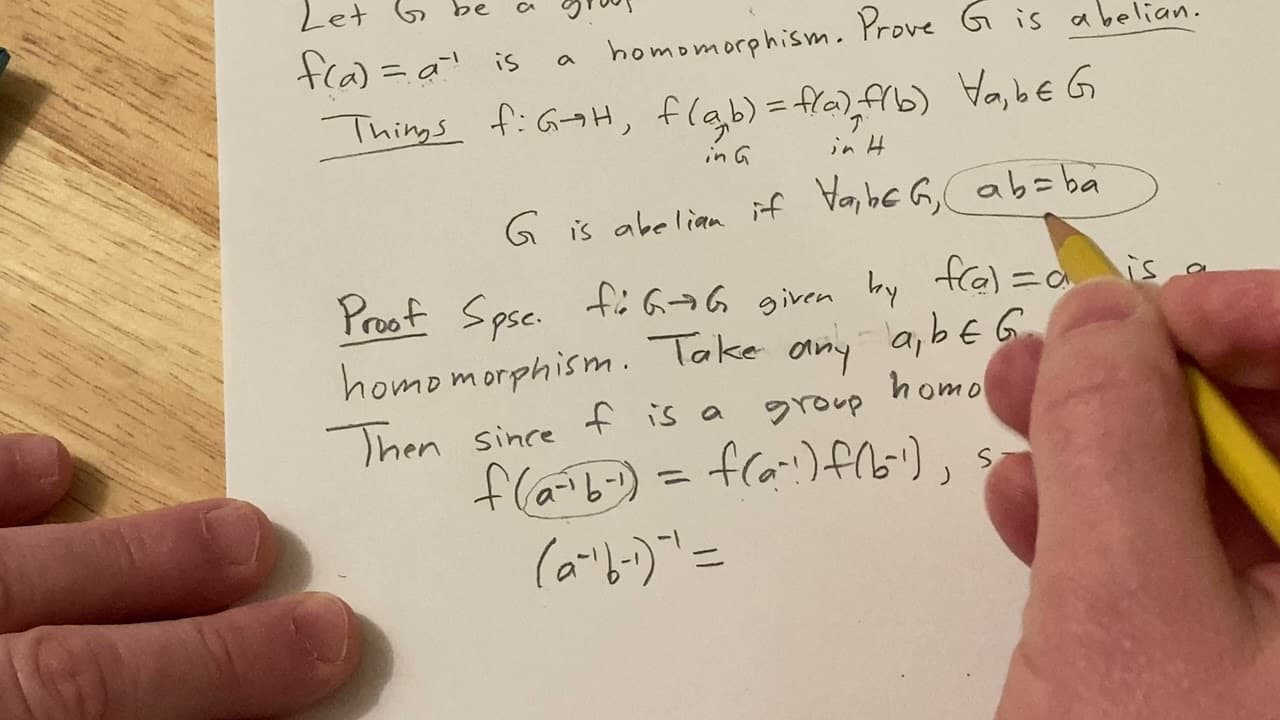 Let G be a group
f(a) = a⁻¹ is a homomorphism. Prove G is abelian.
Things f: G→H, f(ab) = f(a) f(b) ∀a,b ∈ G
in G in H
G is abelian if ∀a,b ∈ G, ab = ba
Proof Spse. f: G→G given by f(a) = a is a
homomorphism. Take any a, b ∈ G
Then since f is a group homo
f(a⁻¹b⁻¹) = f(a⁻¹) f(b⁻¹), s
(a⁻¹b⁻¹)⁻¹ =